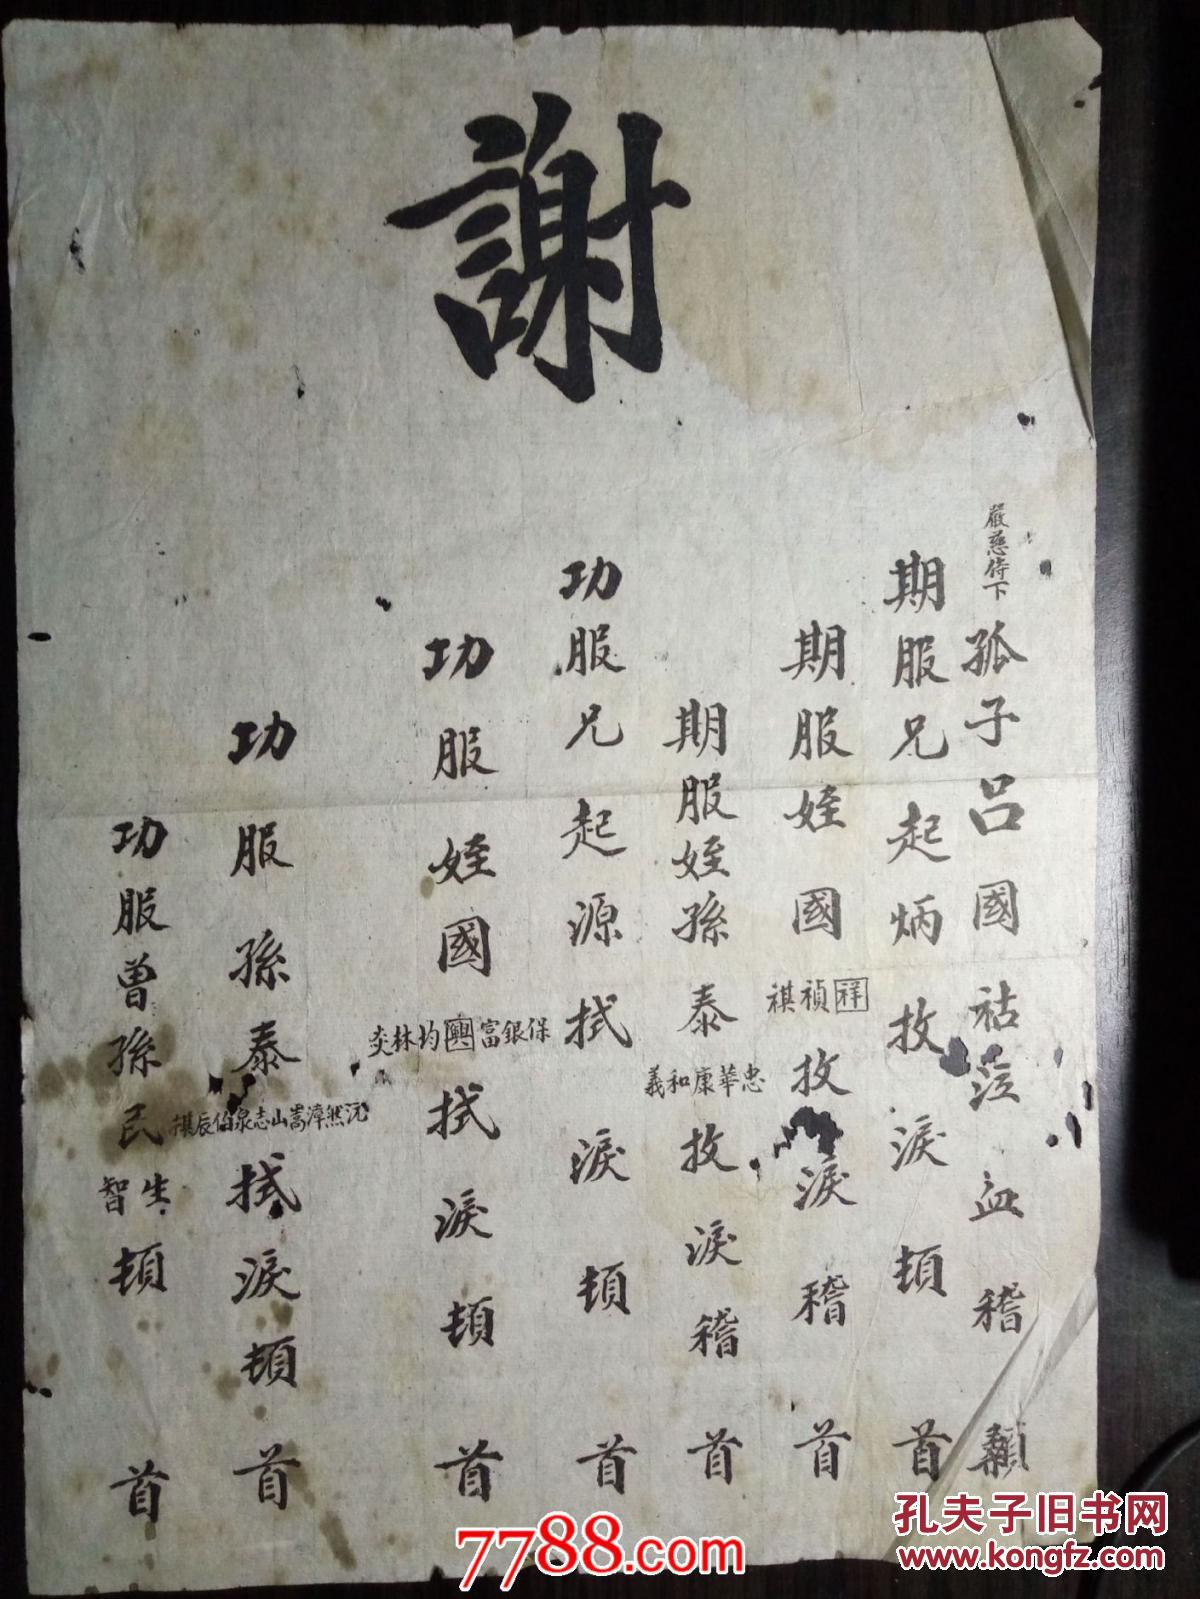 謝
嚴慈侍下
孤子吕國祜泣血稽顙
期服兄起炳抆淚頓首
期服姪國祥禎祺抆淚稽首
期服姪孫泰忠華康和義抆淚稽首
功服兄起源拭淚頓首
功服姪國保銀富興均林奕拭淚頓首
功服孫泰沅然漳嵩山志泉伯辰祺拭淚頓首
功服曾孫民生智頓首
孔夫子旧书网
www.kongfz.com
7788.com